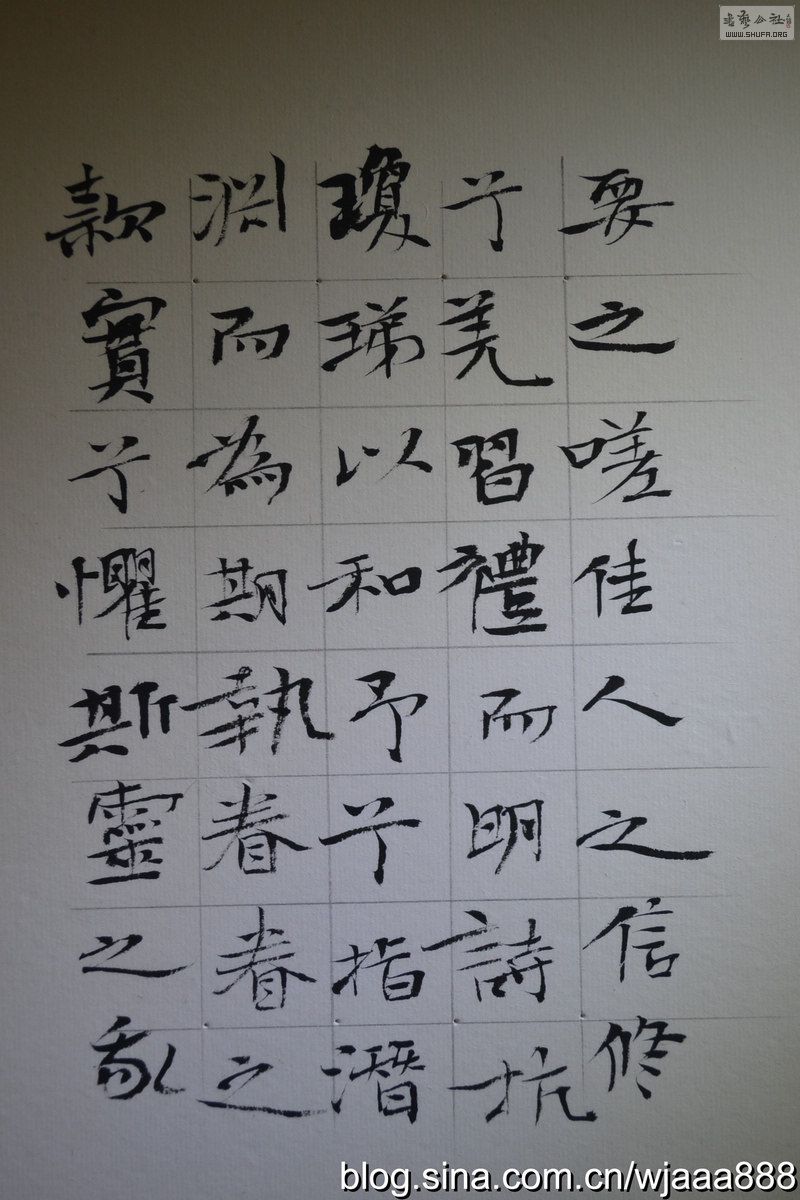 要之嗟佳人之信修
兮羌習禮而明詩抗
瓊珶以和予兮指潛
渊而為期執眷眷之
款實兮懼斯靈之我
書藝公社
WWW.SHUFA.ORG
blog.sina.com.cn/wjaaa888